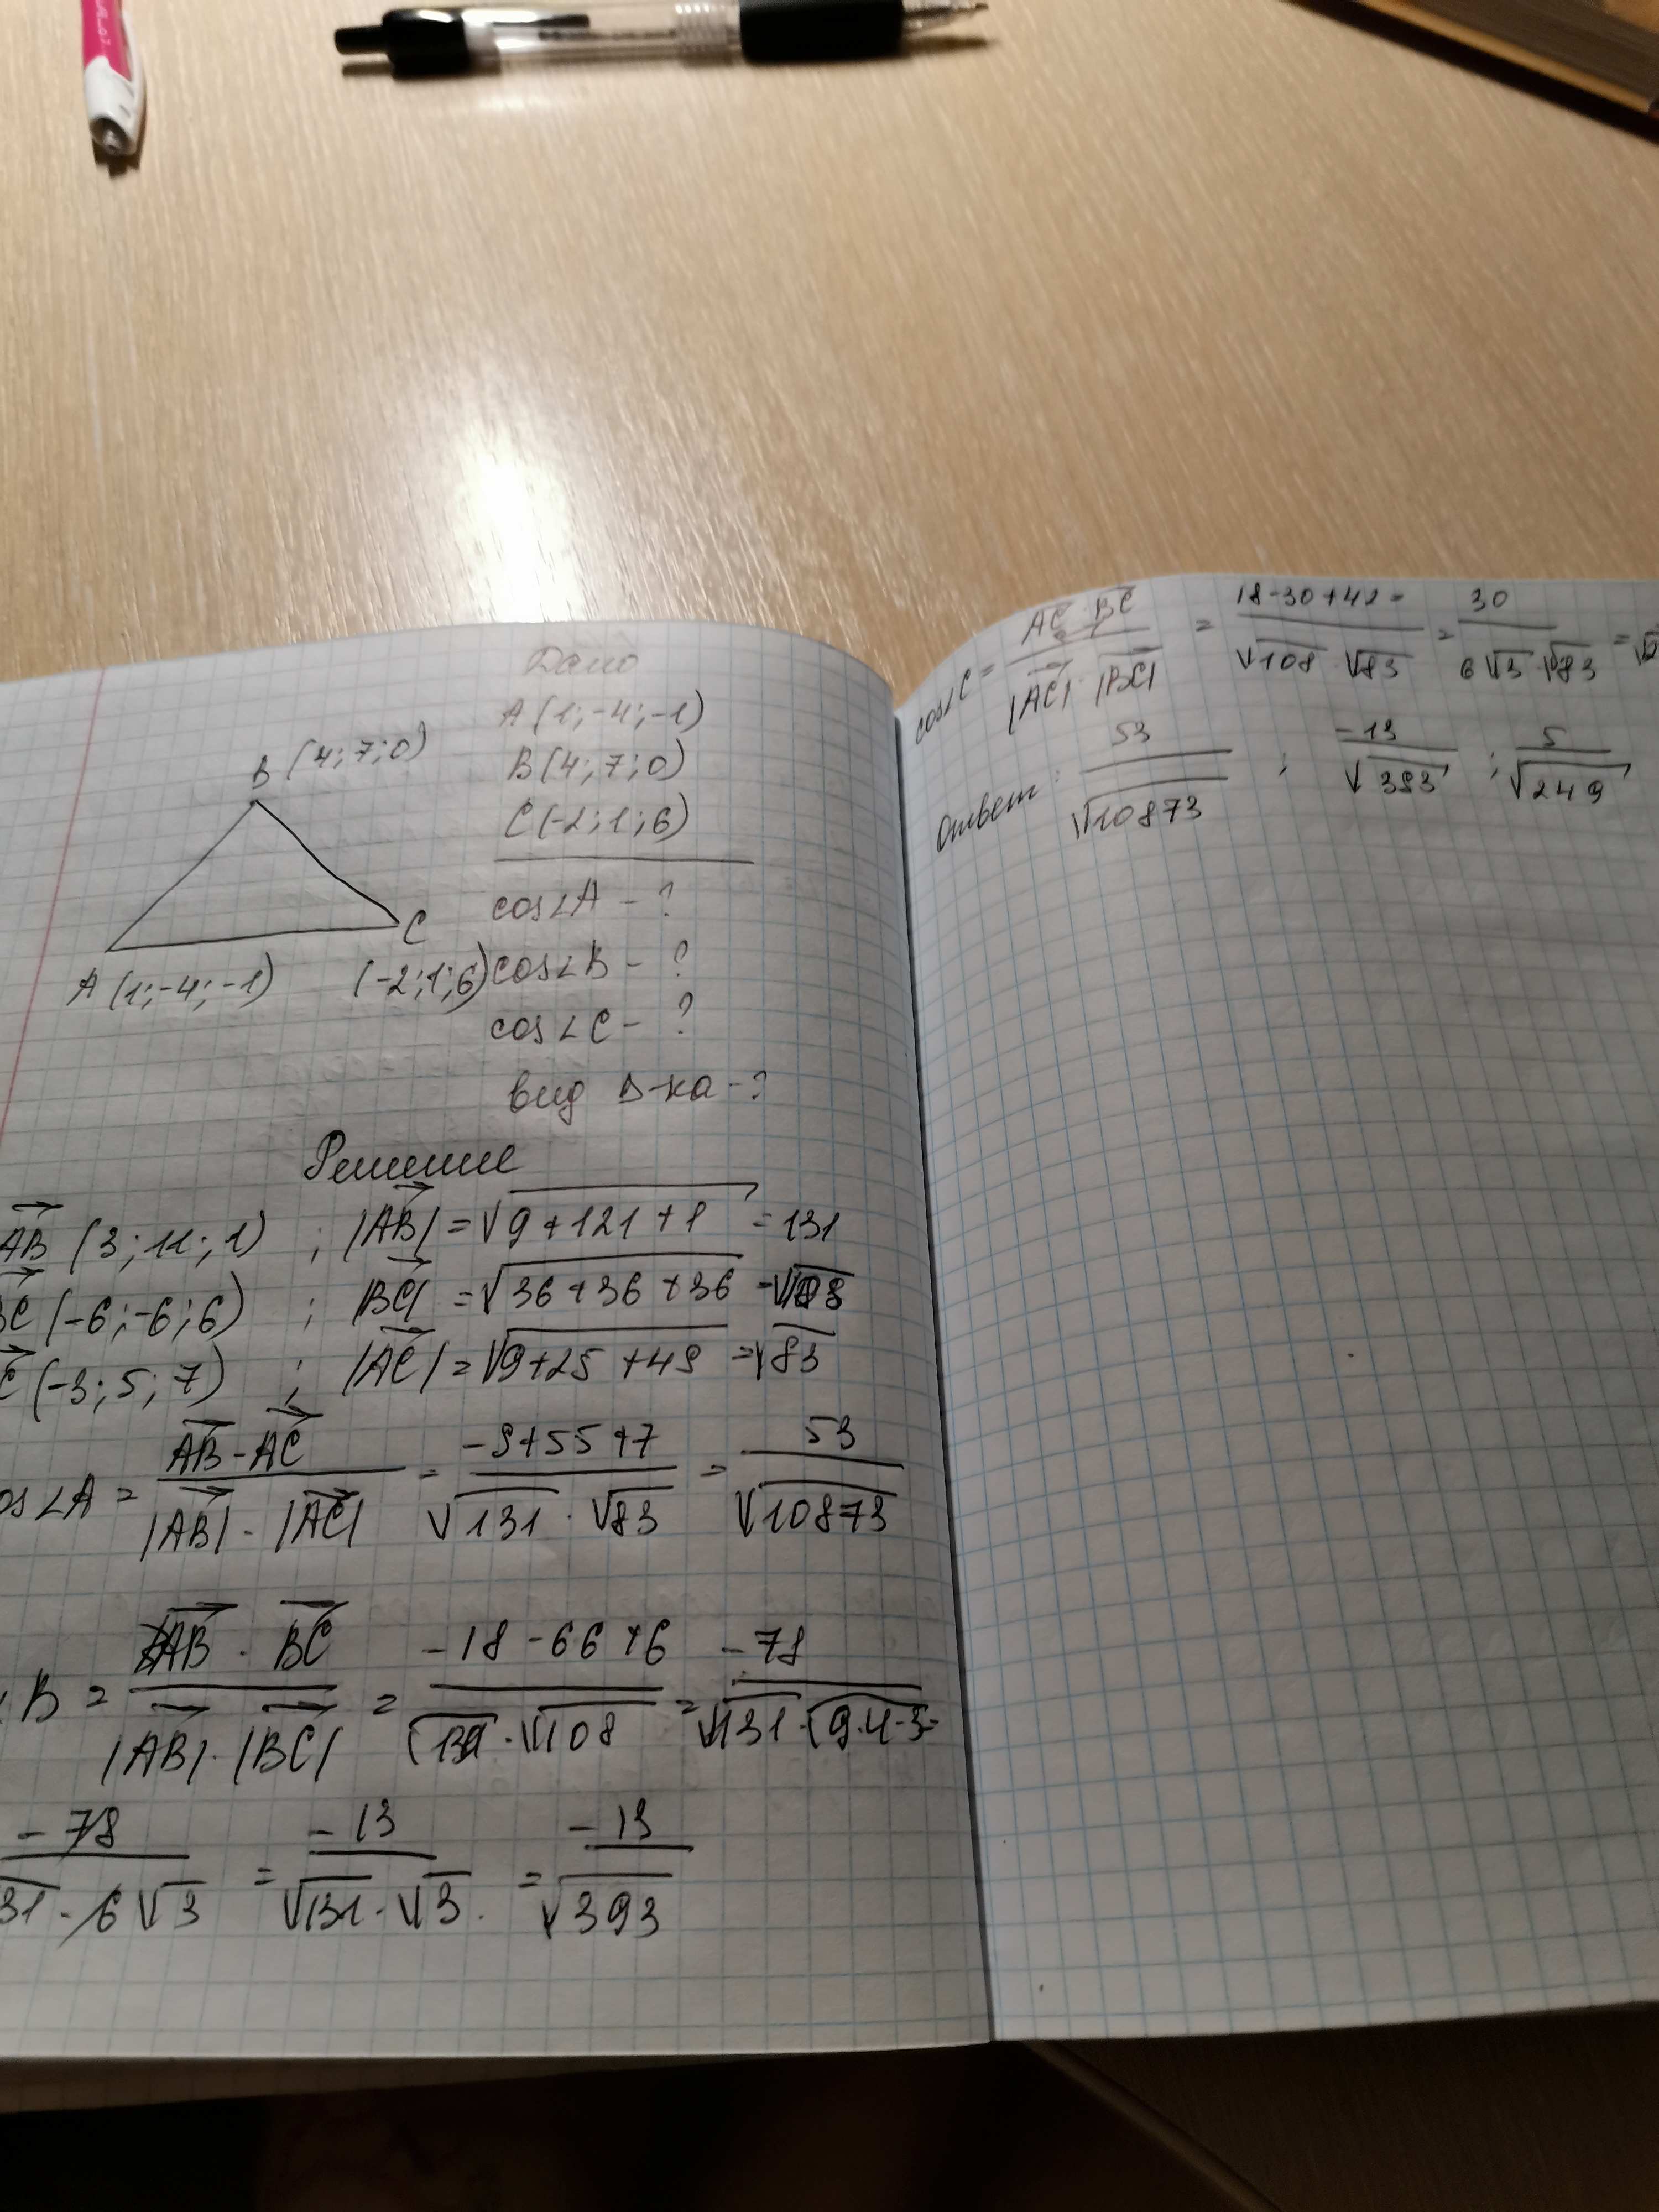 Дано
A (1; -4; -1)
B (4; 7; 0)
C (-2; 1; 6)
cos∠A - ?
cos∠B - ?
cos∠C - ?
вид Δ-ка - ?
B (4; 7; 0)
C
A (1; -4; -1) (-2; 1; 6)
Решение
AB (3; 11; 1) ; |AB| = √9+121+1 = 131
BC (-6; -6; 6) ; |BC| = √36+36+36 = √108
C (-3; 5; 7) ; |AC| = √9+25+49 = √83
os∠A = AB·AC / |AB|·|AC| = -9+55+7 / √131·√83 = 53 / √10873
B = AB·BC / |AB|·|BC| = -18-66+6 / √131·√108 = -78 / √131·√9·4·3 =
-78 / 31·6√3 = -13 / √131·√3 = -13 / √393
cos∠C = AC·BC / |AC|·|BC| = 18-30+42 = / √108·√83 = 30 / 6√3·√83 =
Ответ: 53 / √10873 ; -13 / √393 ; 5 / √249